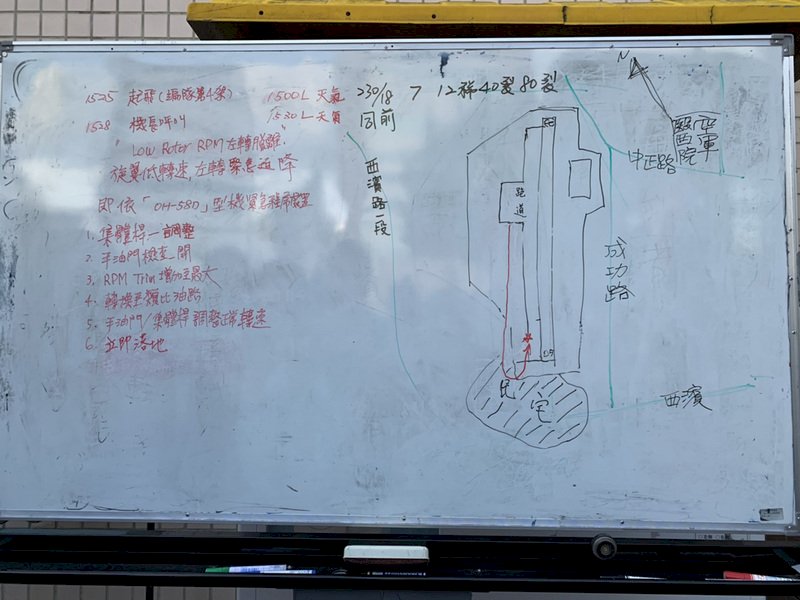 1525 起飛(編隊第4架)
1500L 天氣 230/18 7 12稀40裂80裂
1528 機長呼叫
1530L 天氣 同前
"Low Rotor RPM 左轉脫離"
旋翼低轉速,左轉緊急迫降
即依「OH-58D」型機緊急程序處置
1. 集體桿—調整
2. 手油門檢查—開
3. RPM Trim 增加至最大
4. 轉換至類比油路
5. 手油門/集體桿 調整控轉速
6. 立即落地
N
國軍
醫院
中正路
西濱路一段
跑道
成功路
民宅
西濱